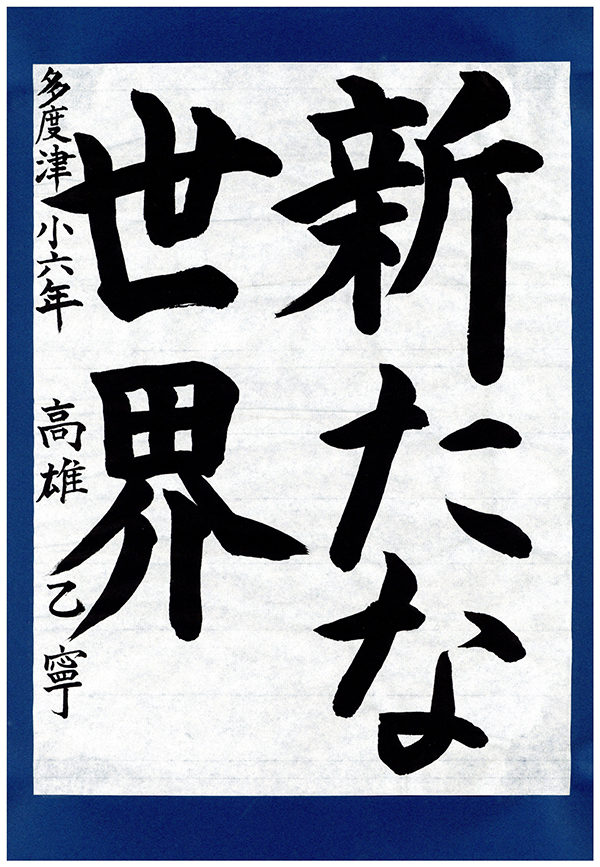 新たな
世界
多度津小六年 高雄 乙寧